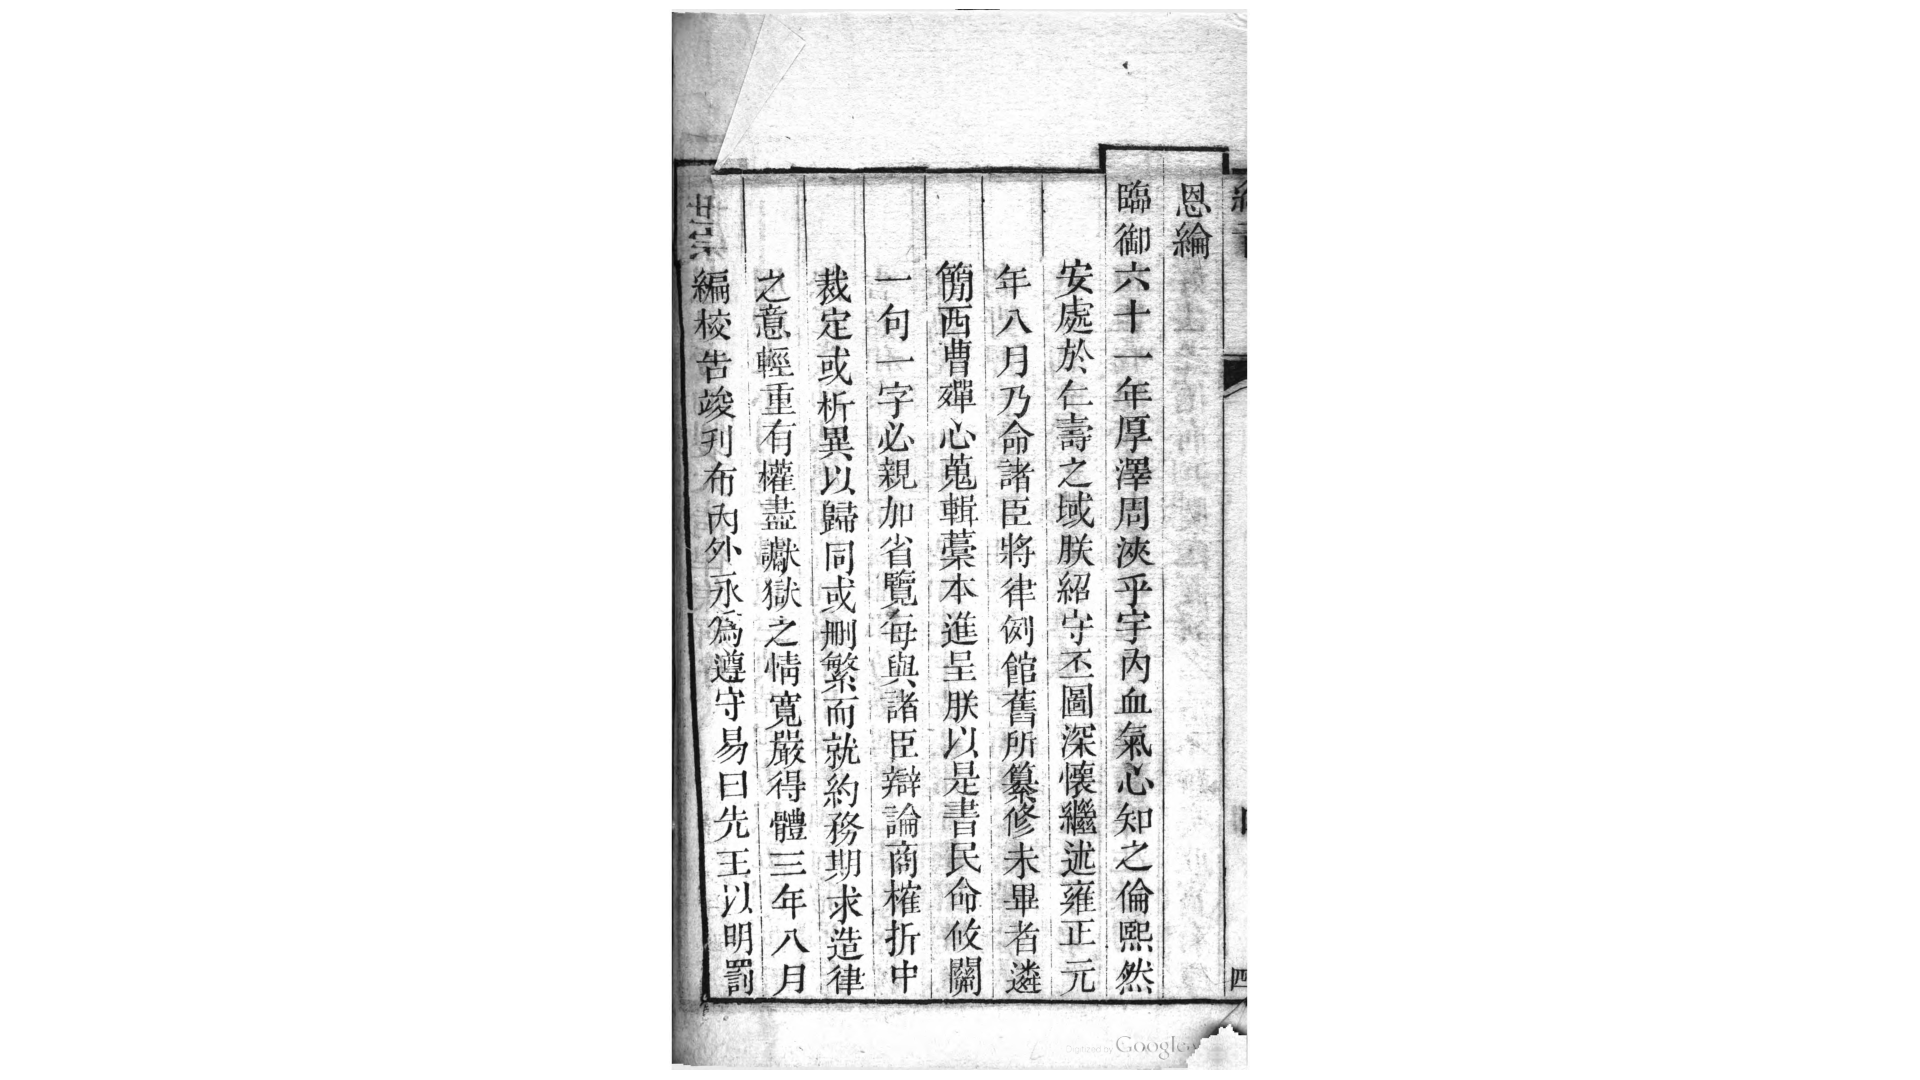 恩綸
臨御六十一年厚澤周浹乎宇內血氣心知之倫熙然
安處於仁壽之域朕紹守丕圖深懷繼述雍正元
年八月乃命諸臣將律例館舊所纂修未畢者遴
簡西曹殫心蒐輯藁本進呈朕以是書民命攸關
一句一字必親加省覽每與諸臣辯論商榷折中
裁定或析異以歸同或刪繁而就約務期求造律
之意輕重有權盡讞獄之情寬嚴得體三年八月
編校告竣刋布內外永為遵守易曰先王以明罰
世宗
四
Digitized by Google